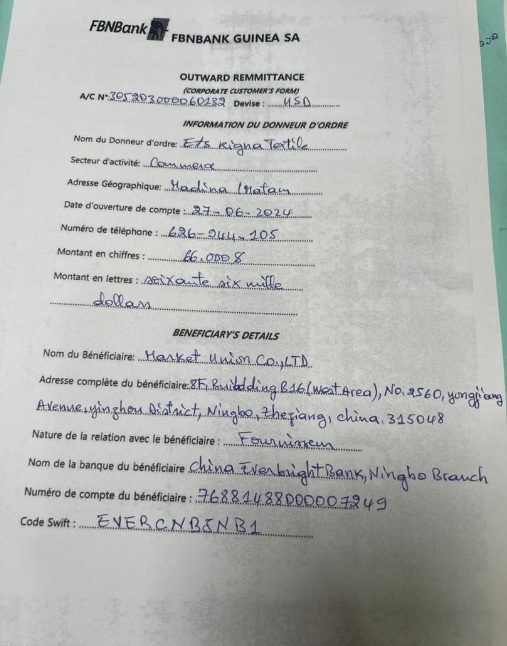 FBNBank
FBNBANK GUINEA SA
OUTWARD REMMITTANCE
(CORPORATE CUSTOMER'S FORM)
A/C N° 305203000060182 Devise : USD
INFORMATION DU DONNEUR D'ORDRE
Nom du Donneur d'ordre: Ets Kigna Textile
Secteur d'activité: Commerce
Adresse Géographique: Madina / Matam
Date d'ouverture de compte : 27-06-2024
Numéro de téléphone : 626-944-105
Montant en chiffres : 66.000$
Montant en lettres : seixante six mille
dollars
BENEFICIARY'S DETAILS
Nom du Bénéficiaire: Market Union Co.,LTD
Adresse complète du bénéficiaire: 8F, Buildding B16 (West Area), No. 2560, yongjiang
Avenue, yinzhou District, Ningbo, zhejiang, china. 315048
Nature de la relation avec le bénéficiaire : Fournisseur
Nom de la banque du bénéficiaire China Everbright Bank, Ningbo Branch
Numéro de compte du bénéficiaire : 76881488000007249
Code Swift : EVERCNBJNB1